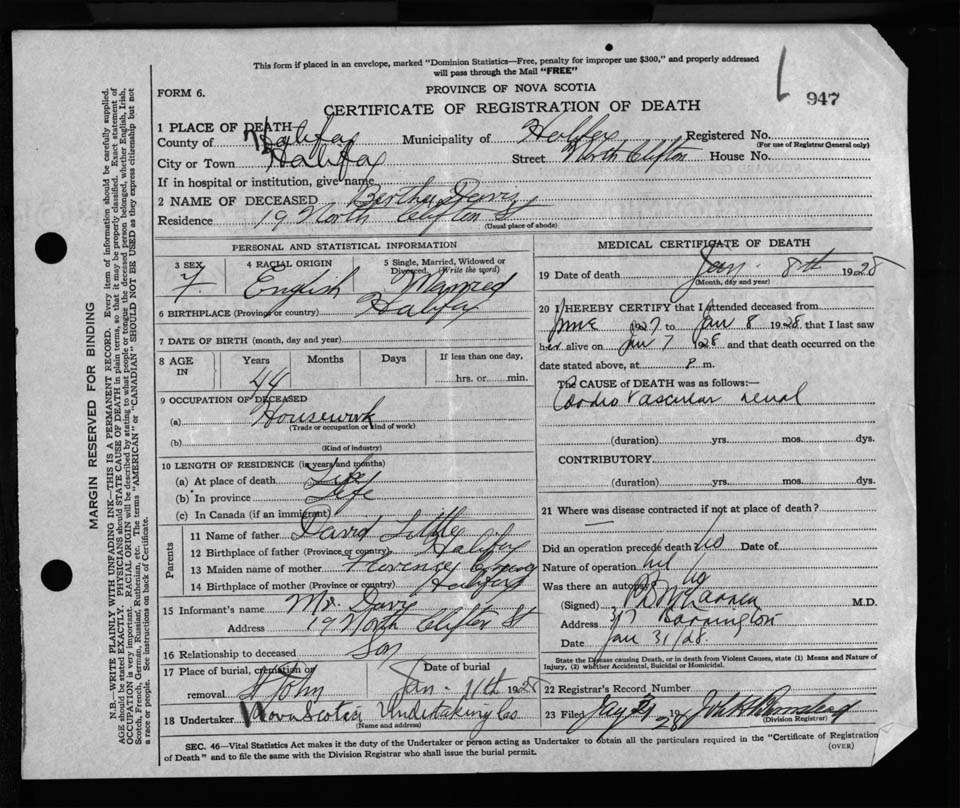 This form if placed in an envelope, marked "Dominion Statistics—Free, penalty for improper use $300," and properly addressed
will pass through the Mail "FREE"
947
FORM 6.
PROVINCE OF NOVA SCOTIA
CERTIFICATE OF REGISTRATION OF DEATH
1 PLACE OF DEATH
County of Halifax Municipality of Halifax Registered No.
(For use of Registrar General only)
City or Town Halifax Street North Clifton House No.
If in hospital or institution, give name
2 NAME OF DECEASED Bertha
Residence 19 North Clifton St
(Usual place of abode)
PERSONAL AND STATISTICAL INFORMATION
3 SEX 4 RACIAL ORIGIN 5 Single, Married, Widowed or
Divorced (Write the word)
F. English Married
6 BIRTHPLACE (Province or country) Halifax
7 DATE OF BIRTH (month, day and year)
8 AGE IN Years Months Days If less than one day,
44 hrs. or min.
9 OCCUPATION OF DECEASED
(a) Housework
(Trade or occupation or kind of work)
(b)
(Kind of industry)
10 LENGTH OF RESIDENCE (in years and months)
(a) At place of death Life
(b) In province Life
(c) In Canada (if an immigrant)
Parents
11 Name of father David Little
12 Birthplace of father (Province or country) Halifax
13 Maiden name of mother Florence
14 Birthplace of mother (Province or country) Halifax
15 Informant's name Mr.
Address 19 North Clifton St
16 Relationship to deceased Son
17 Place of burial, cremation or removal St John Date of burial Jan. 11th 1928
18 Undertaker Nova Scotia Undertaking Co
(Name and address)
MEDICAL CERTIFICATE OF DEATH
19 Date of death Jan. 8th 1928
(Month, day and year)
20 I HEREBY CERTIFY that I attended deceased from
June 1927 to Jan 8 1928, that I last saw
her alive on Jan 7 1928 and that death occurred on the
date stated above, at P. m.
The CAUSE OF DEATH was as follows:—
Cardio Vascular renal
(duration) yrs. mos. dys.
CONTRIBUTORY
(duration) yrs. mos. dys.
21 Where was disease contracted if not at place of death?
Did an operation precede death No Date of
Nature of operation nil
Was there an autopsy No
(Signed) M.D.
Address Barrington
Date Jan 31/28.
State the Disease causing Death, or in death from Violent Causes, state (1) Means and Nature of
Injury, (2) whether Accidental, Suicidal or Homicidal.
22 Registrar's Record Number
23 Filed 19
(Division Registrar)
SEC. 46—Vital Statistics Act makes it the duty of the Undertaker or person acting as Undertaker to obtain all the particulars required in the "Certificate of Registration
of Death" and to file the same with the Division Registrar who shall issue the burial permit.
(OVER)
MARGIN RESERVED FOR BINDING
N.B.—WRITE PLAINLY WITH UNFADING INK—THIS IS A PERMANENT RECORD. Every item of information should be carefully supplied.
AGE should be stated EXACTLY. PHYSICIANS should STATE CAUSE OF DEATH in plain terms, so that it may be properly classified. Exact statement of
OCCUPATION is very important. RACIAL ORIGIN will be described by stating to what people or tongue the deceased person belonged, whether English, Irish,
Scotch, French, German, Russian, Ruthenian, etc. The terms "AMERICAN" or "CANADIAN" SHOULD NOT BE USED as they express citizenship but not
a race or people. See instructions on back of Certificate.